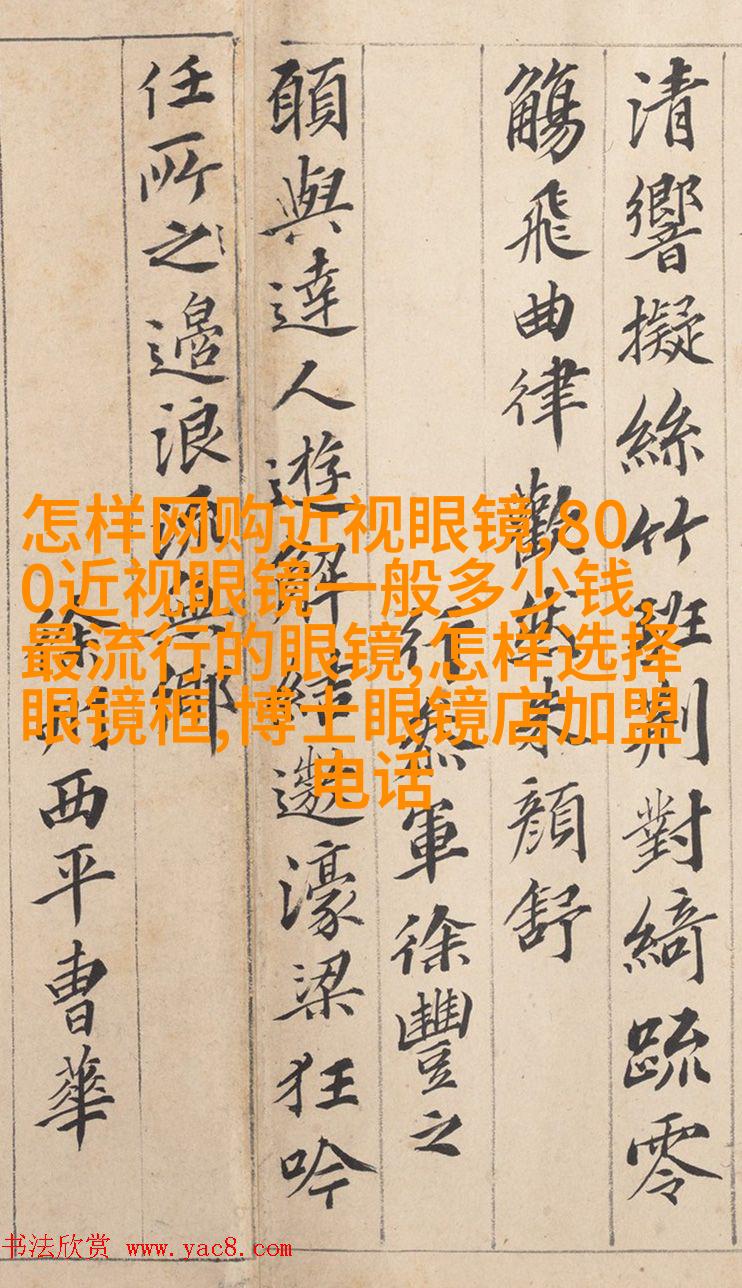 清響擬絲竹班荆對綺疏零
觴飛曲律歡然朱顏舒
行叅軍徐豐之
頋與達人遊解結遨濠梁狂吟
任所之邉浪流
徐州西平曹華
怎样网购近视眼镜,80
0近视眼镜一般多少钱,
最流行的眼镜,怎样选择
眼镜框,博士眼镜店加盟
电话
书法欣赏 www.yac8.com